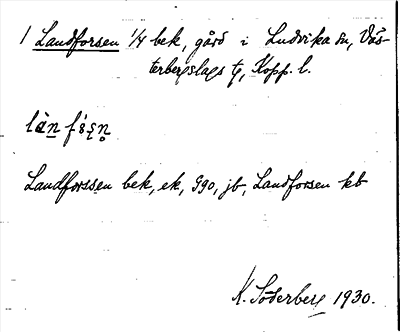 1 Landforsen 1/4 bek, gård i Ludvika sn, Väs-
terbergslags tg, Kopp. l.
Landforssen bek, ek, 990, jb, Landforsen kb
K. Söderberg 1930.